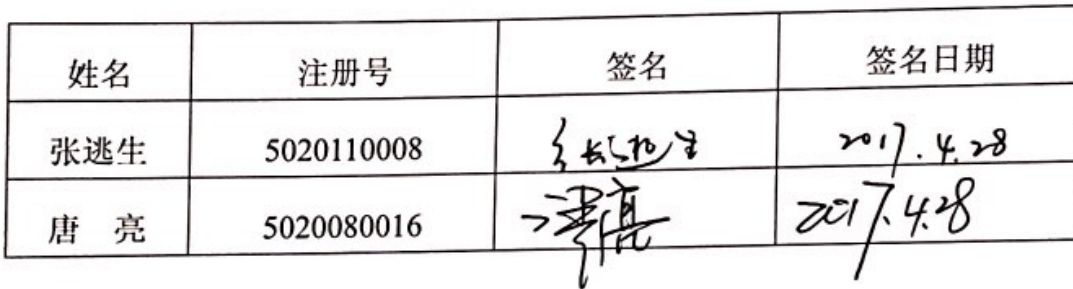 姓名 注册号 签名 签名日期
张逃生 5020110008 张逃生 2017.4.28
唐 亮 5020080016 唐亮 2017.4.28